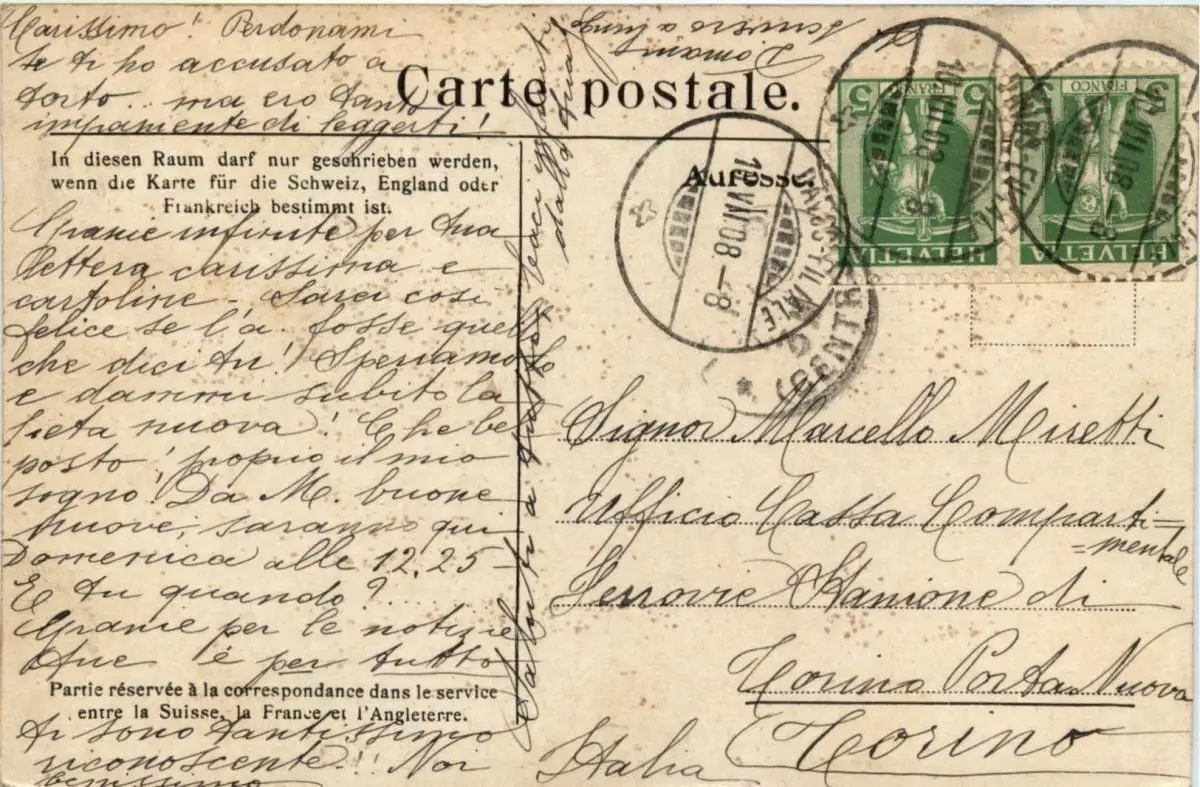 Carissimo! Perdonami
se ti ho accusato a
torto.. ma ero tanto
impaziente di leggerti!
Carte postale.
In diesen Raum darf nur geschrieben werden,
wenn die Karte für die Schweiz, England oder
Frankreich bestimmt ist.
Grazie infinite per tua
lettera carissima e
cartoline - Sarei così
felice se l'a. fosse quel
che dici tu! Speriamolo
e dammi subito la
lieta nuova! Che bel
posto! proprio il mio
sogno! Da M. buone
nuove, saranno qui
Domenica alle 12,25 -
E tu quando?
Grazie per le notizie
che è per tutto
Partie réservée à la correspondance dans le service
entre la Suisse, la France et l'Angleterre.
ti sono tantissimo
riconoscente! Noi
benissimo
Saluti a tutti baci infiniti
dalla tua
Domani
scriverò a
Adresse.
5 FRANCO 5
HELVETIA
FRANCO 5
HELVETIA
10.VII.08.-8
10.VII.08.-8
10.VII.08.-8
Signor Marcello Miretti
Ufficio Cassa Comparti=
=mentale
Ferrovie Stazione di
Torino Porta Nuova
Torino
Italia